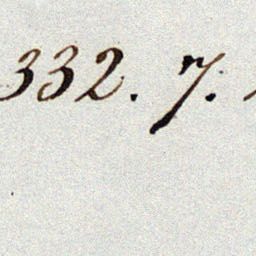 332. 7.